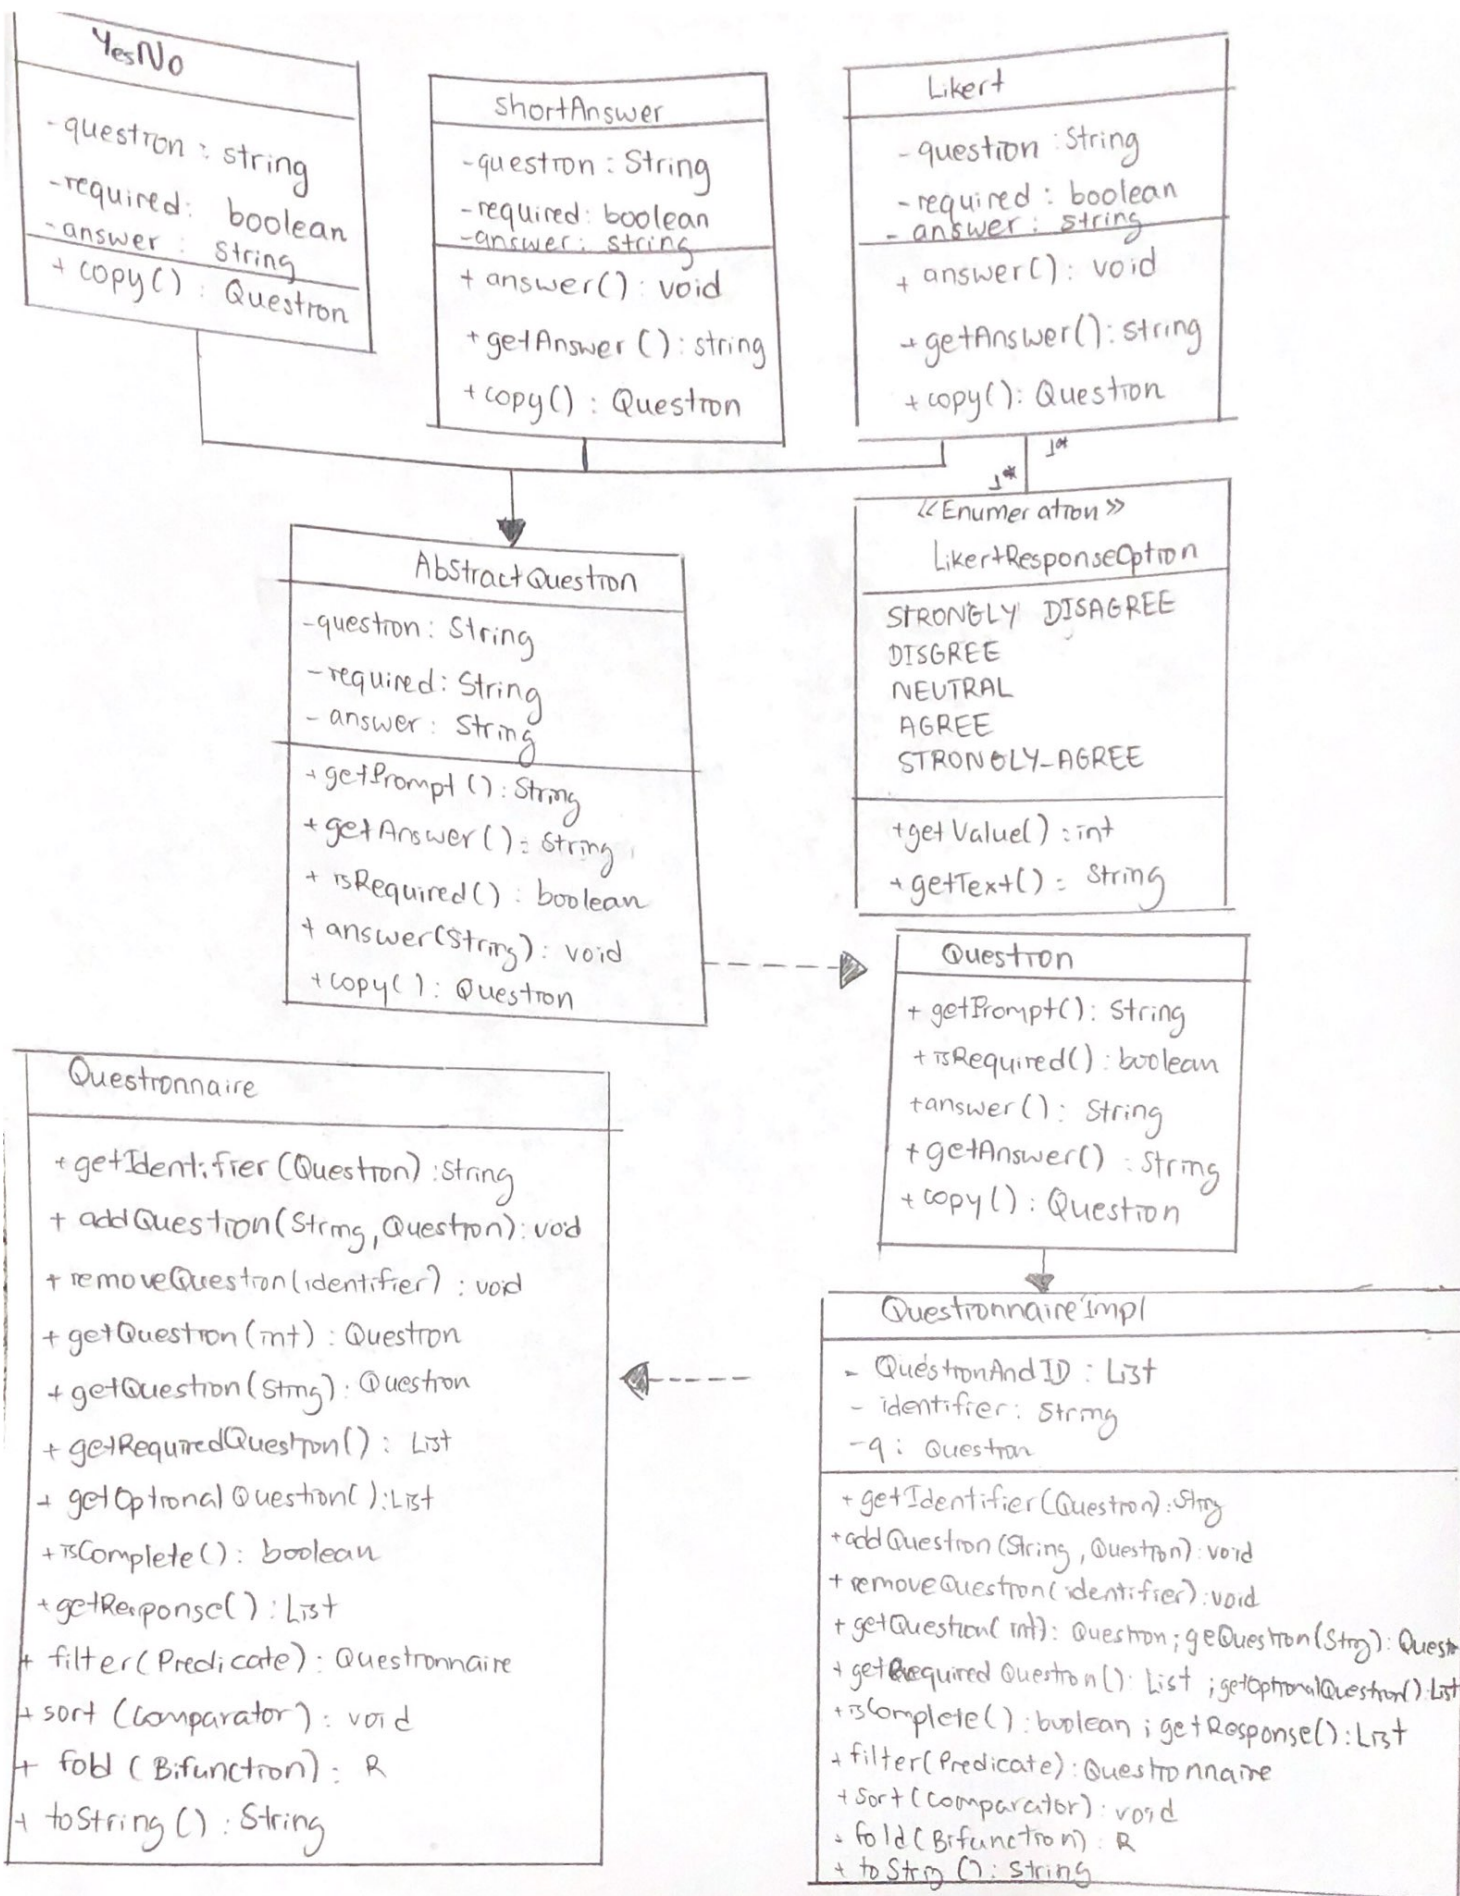 YesNo
- question : string
- required : boolean
- answer : String
+ copy() : Question
shortAnswer
- question : String
- required : boolean
- answer : string
+ answer() : void
+ getAnswer() : string
+ copy() : Question
Likert
- question : String
- required : boolean
- answer : string
+ answer() : void
+ getAnswer() : string
+ copy() : Question
1*
1*
<<Enumeration>>
LikertResponseOption
STRONGLY DISAGREE
DISGREE
NEUTRAL
AGREE
STRONGLY-AGREE
+ getValue() : int
+ getText() : String
AbstractQuestion
- question : String
- required : String
- answer : String
+ getPrompt() : String
+ getAnswer() : String
+ isRequired() : boolean
+ answer(String) : void
+ copy() : Question
Question
+ getPrompt() : String
+ isRequired() : boolean
+ answer() : String
+ getAnswer() : String
+ copy() : Question
Questionnaire
+ getIdentifier(Question) : String
+ addQuestion(String, Question) : void
+ removeQuestion(identifier) : void
+ getQuestion(int) : Question
+ getQuestion(String) : Question
+ getRequiredQuestion() : List
+ getOptionalQuestion() : List
+ isComplete() : boolean
+ getResponse() : List
+ filter(Predicate) : Questionnaire
+ sort (Comparator) : void
+ fold (Bifunction) : R
+ toString() : String
QuestionnaireImpl
- QuestionAndID : List
- identifier : String
- q : Question
+ getIdentifier(Question) : String
+ addQuestion(String, Question) : void
+ removeQuestion(identifier) : void
+ getQuestion(int) : Question ; geQuestion(Strng) : Questi
+ getRequired Question() : List ; getOptionalQuestion() : List
+ isComplete() : boolean ; getResponse() : List
+ filter(Predicate) : Questionnaire
+ sort(comparator) : void
- fold(Bifunction) : R
+ toStrng() : String